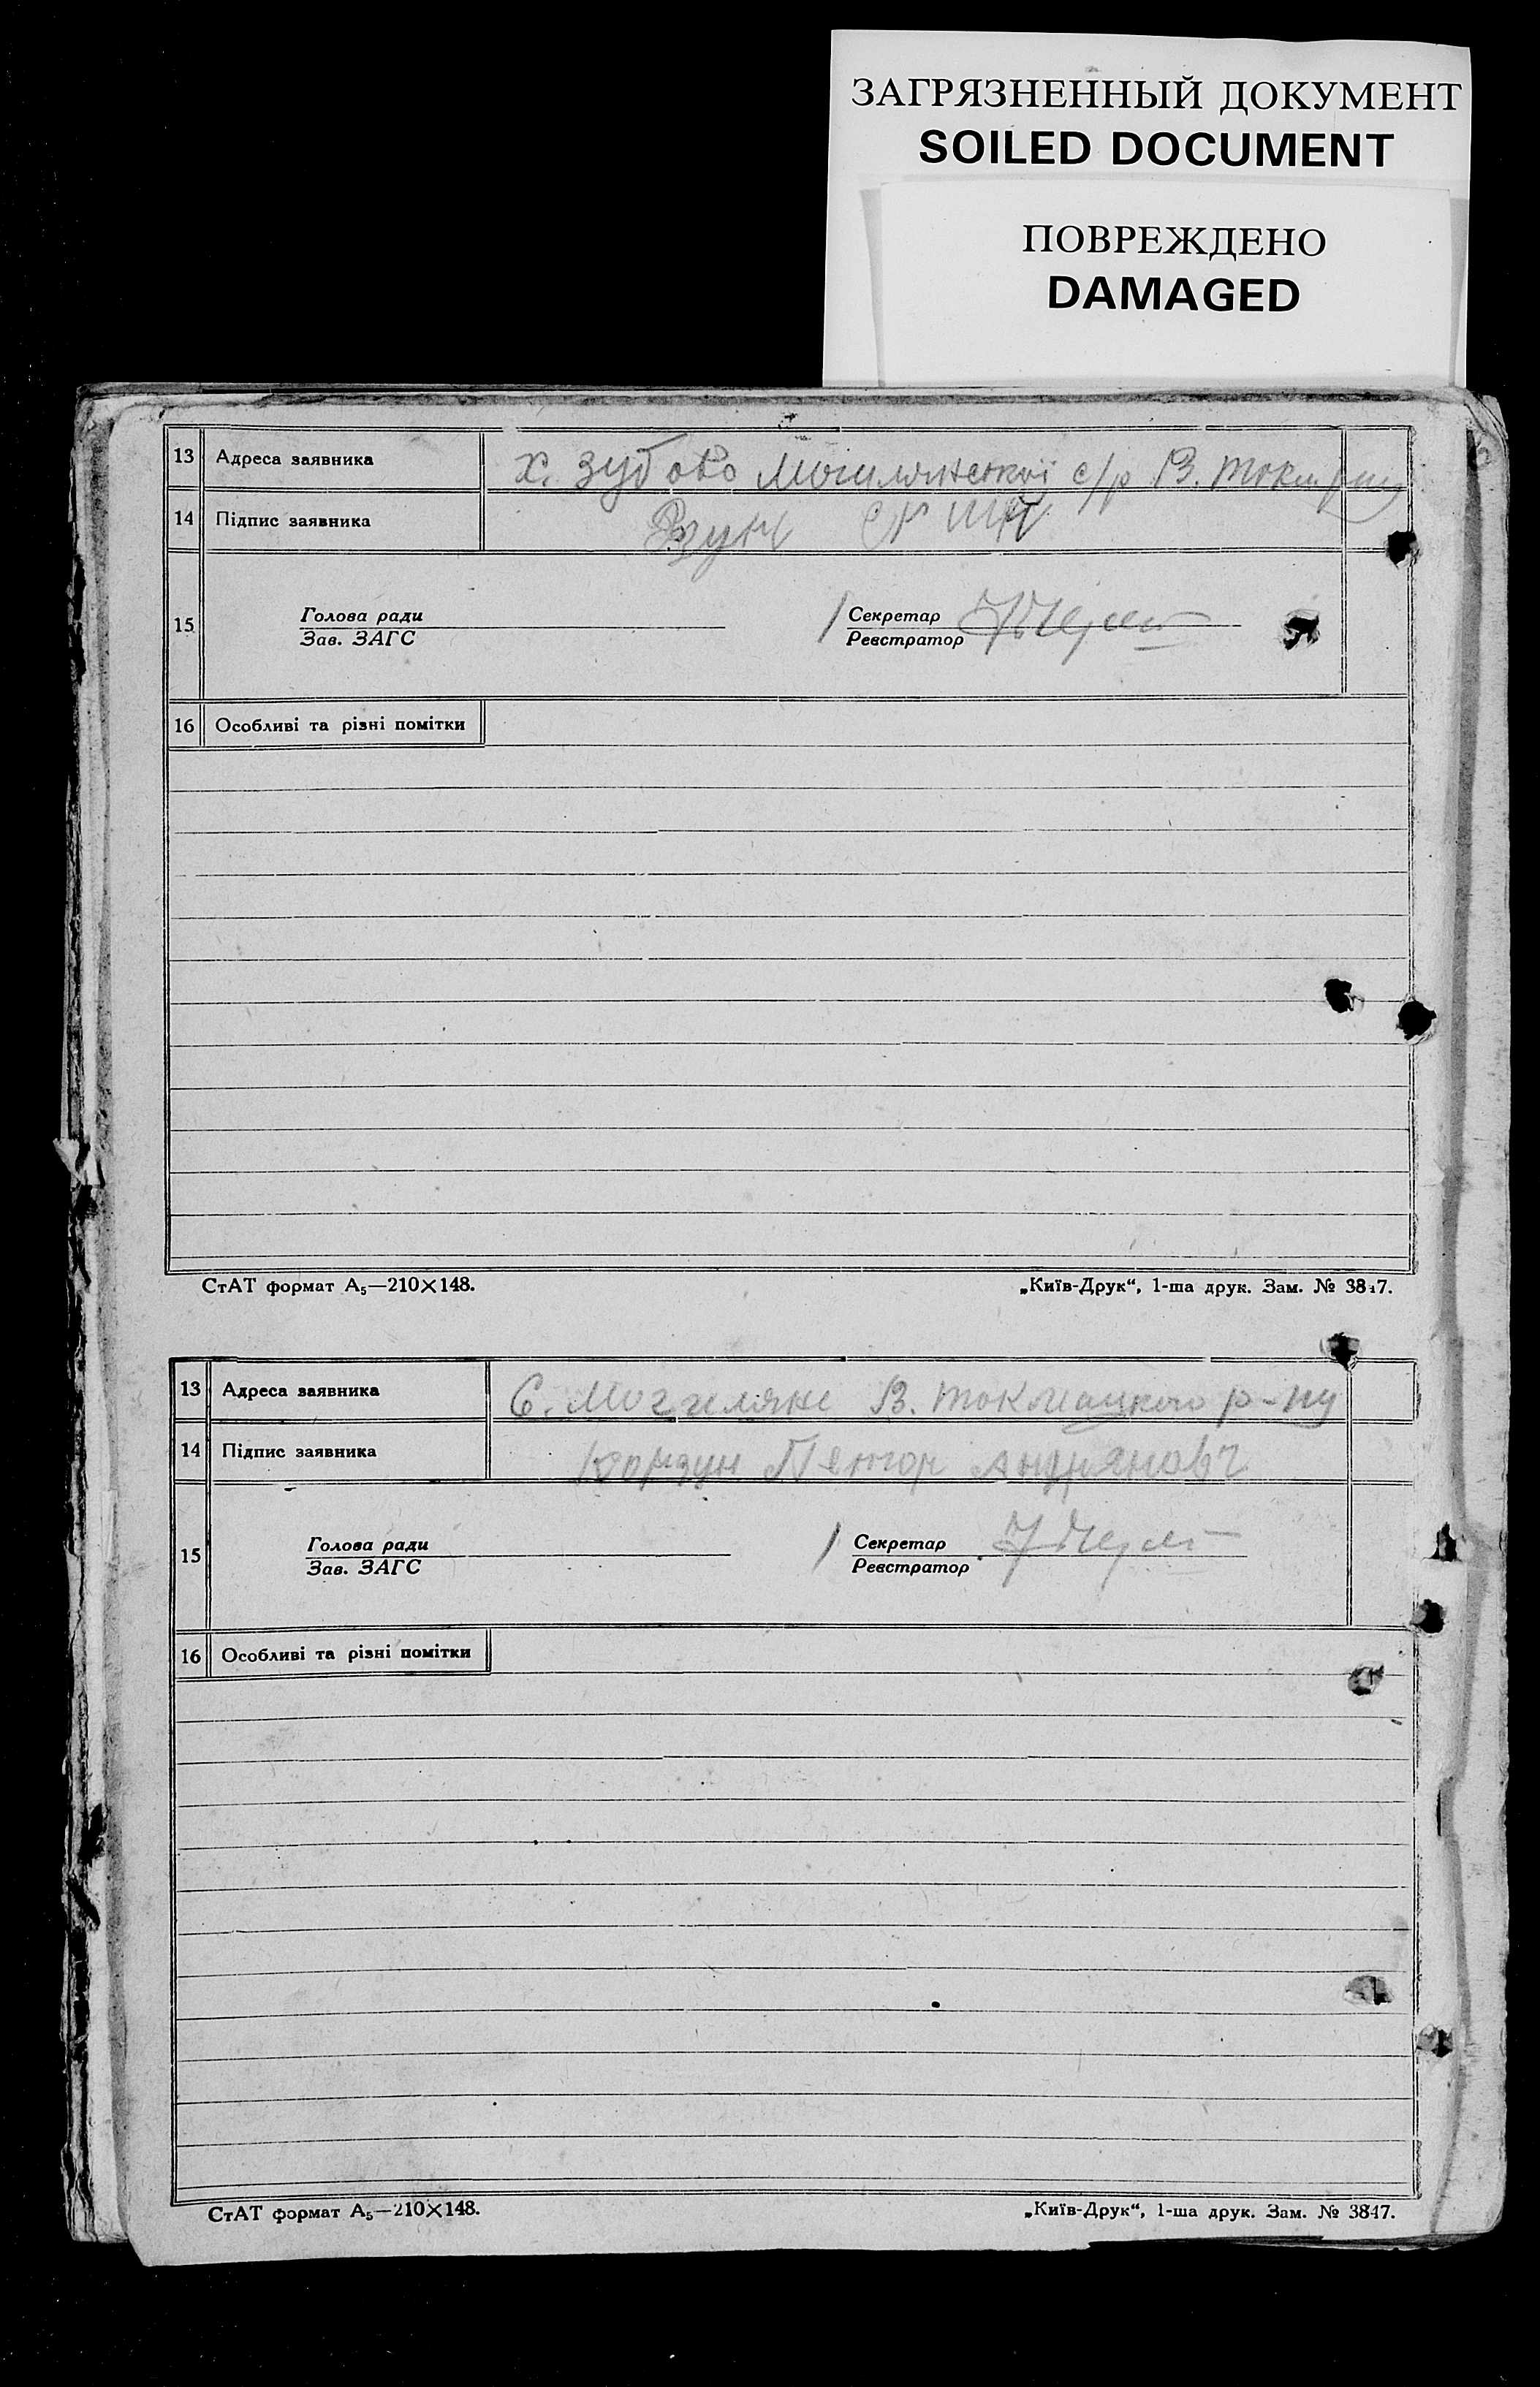 ЗАГРЯЗНЕННЫЙ ДОКУМЕНТ
SOILED DOCUMENT
ПОВРЕЖДЕНО
DAMAGED
13 Адреса заявника х. Зубово Могилянської с/р В. Токм. р-ну
14 Підпис заявника
15 Голова ради Секретар
Зав. ЗАГС Реєстратор
16 Особливі та різні помітки
СтАТ формат А5—210×148. „Київ-Друк“, 1-ша друк. Зам. № 3847.
13 Адреса заявника С. Могиляне В. Токмацкого р-ну
14 Підпис заявника Корзун Петор Андряновч
15 Голова ради Секретар
Зав. ЗАГС Реєстратор
16 Особливі та різні помітки
СтАТ формат А5—210×148. „Київ-Друк“, 1-ша друк. Зам. № 3847.